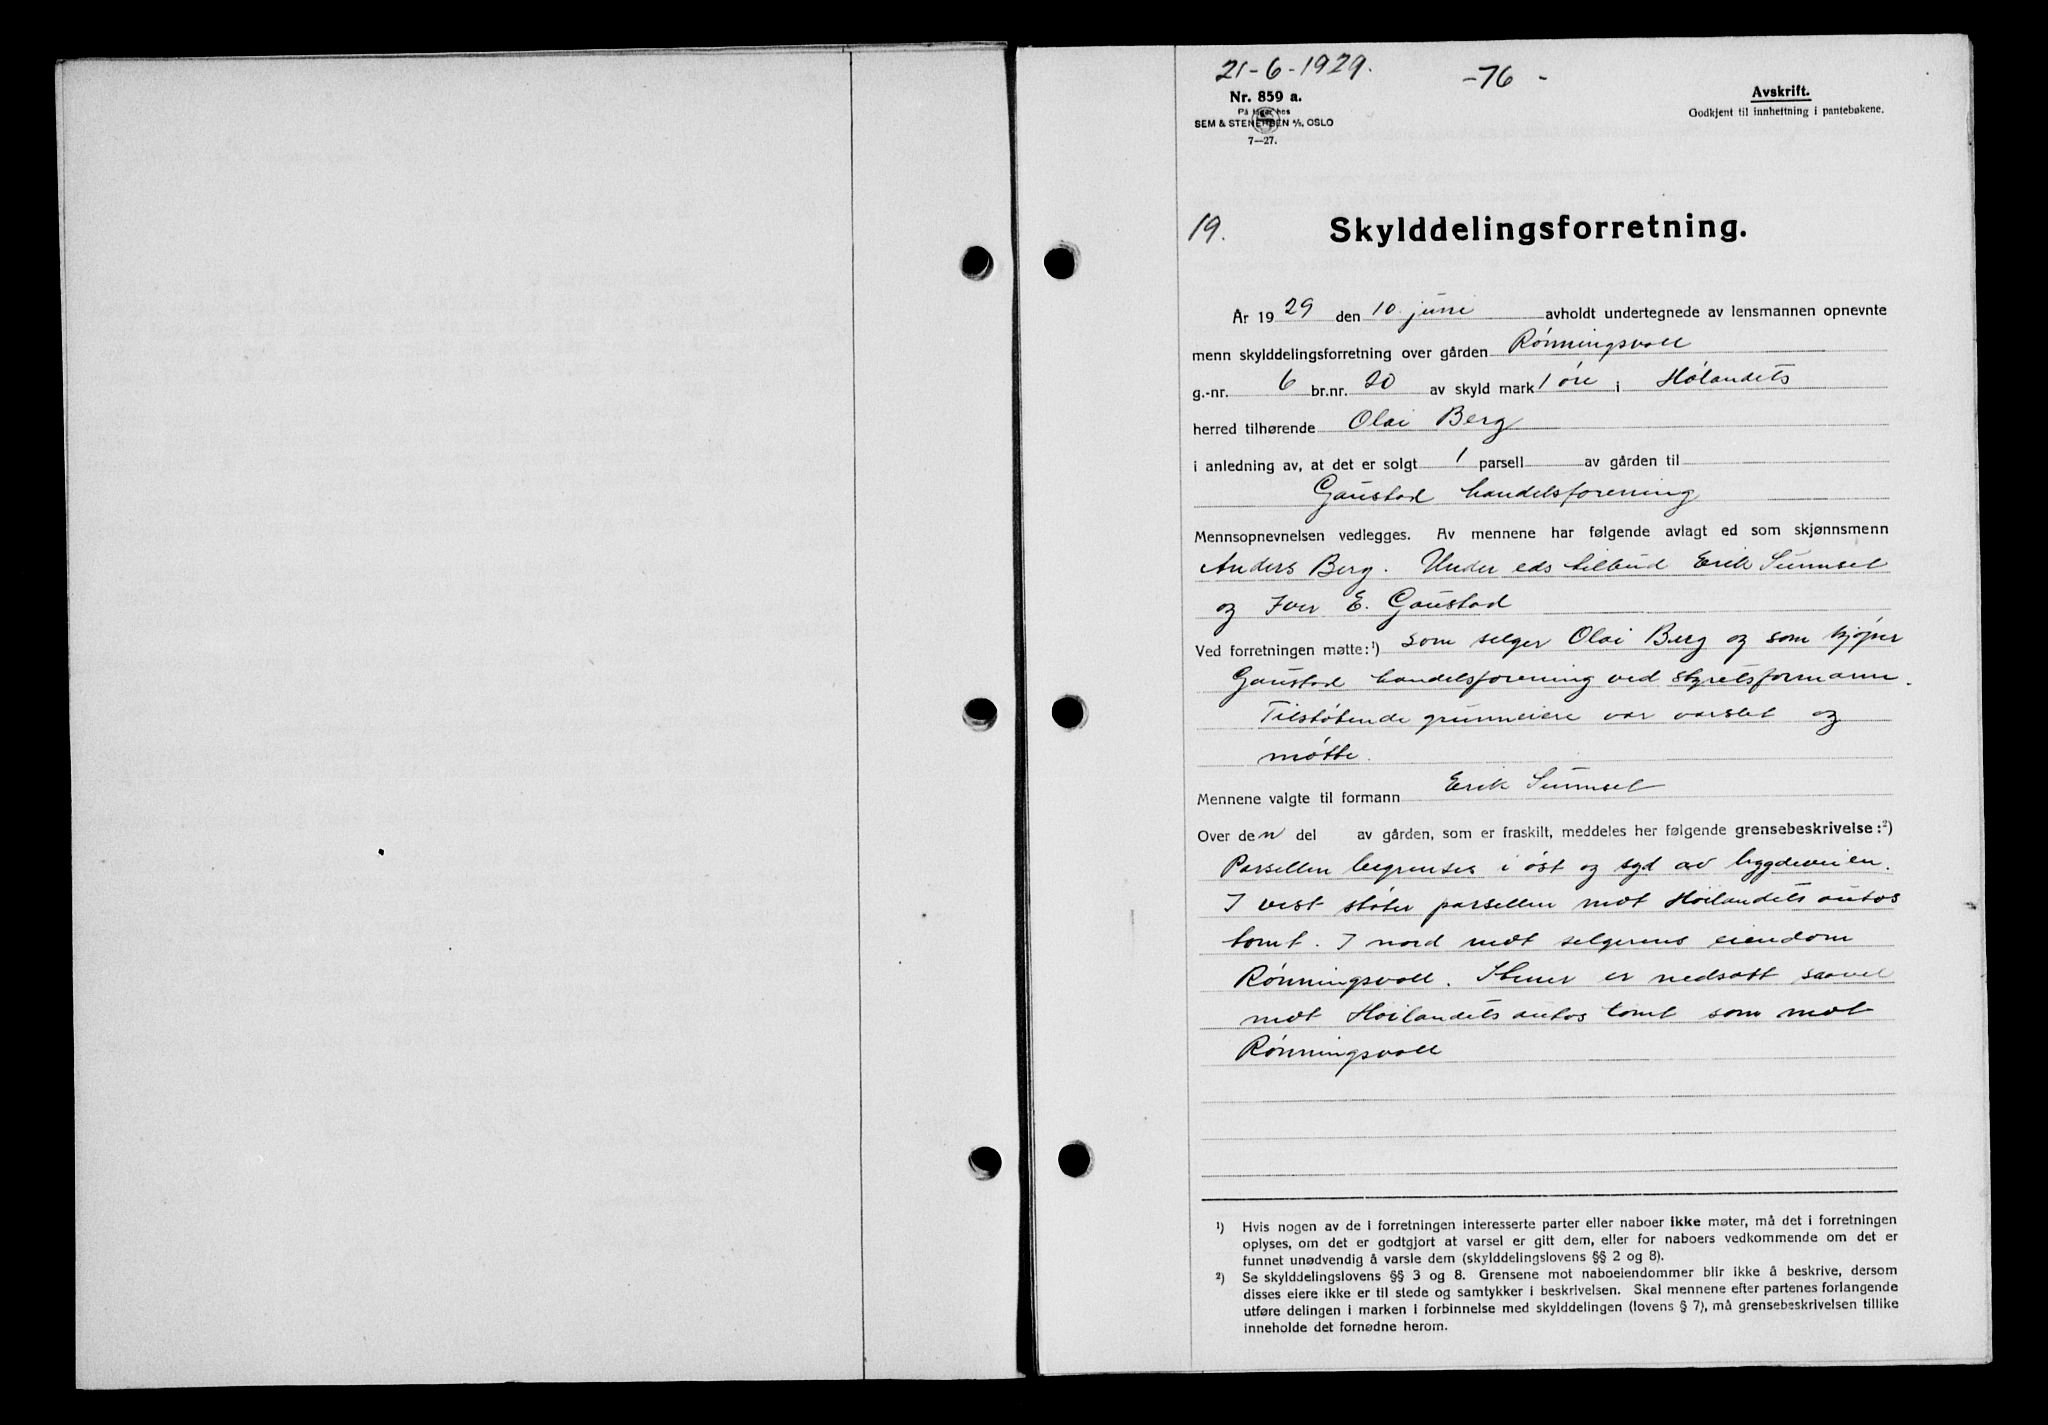 21-6-1929.
-76-
Nr. 859 a.
På lager hos
SEM & STENERSEN A/S, OSLO
7—27.
Avskrift.
Godkjent til innheftning i pantebøkene.
19.
Skylddelingsforretning.
År 1929 den 10 juni avholdt undertegnede av lensmannen opnevnte
menn skylddelingsforretning over gården Rønningsvoll
g.-nr. 6 br.nr. 20 av skyld mark 1 øre i Hølandets
herred tilhørende Olai Berg
i anledning av, at det er solgt 1 parsell av gården til
Gaustad handelsforening
Mennsopnevnelsen vedlegges. Av mennene har følgende avlagt ed som skjønnsmenn
Anders Berg. Under eds tilbud Erik Sunnset
og Iver E. Gaustad
Ved forretningen møtte:¹) som selger Olai Berg og som kjøper
Gaustad handelsforening ved styretsformann.
Tilstøtende grunneiere var varslet og
møtte.
Mennene valgte til formann Erik Sunnset
Over den del av gården, som er fraskilt, meddeles her følgende grensebeskrivelse:²)
Parsellen begrenses i øst og syd av bygdeveien.
I vest støter parsellen mot Høilandets autos
tomt. I nord mot selgerens eiendom
Rønningsvoll. Stener er nedsatt saavel
mot Høilandets autos tomt som mot
Rønningsvoll
¹) Hvis nogen av de i forretningen interesserte parter eller naboer ikke møter, må det i forretningen
oplyses, om det er godtgjort at varsel er gitt dem, eller for naboers vedkommende om det er
funnet unødvendig å varsle dem (skylddelingslovens §§ 2 og 8).
²) Se skylddelingslovens §§ 3 og 8. Grensene mot naboeiendommer blir ikke å beskrive, dersom
disses eiere ikke er til stede og samtykker i beskrivelsen. Skal mennene efter partenes forlangende
utføre delingen i marken i forbinnelse med skylddelingen (lovens § 7), må grensebeskrivelsen tillike
inneholde det fornødne herom.